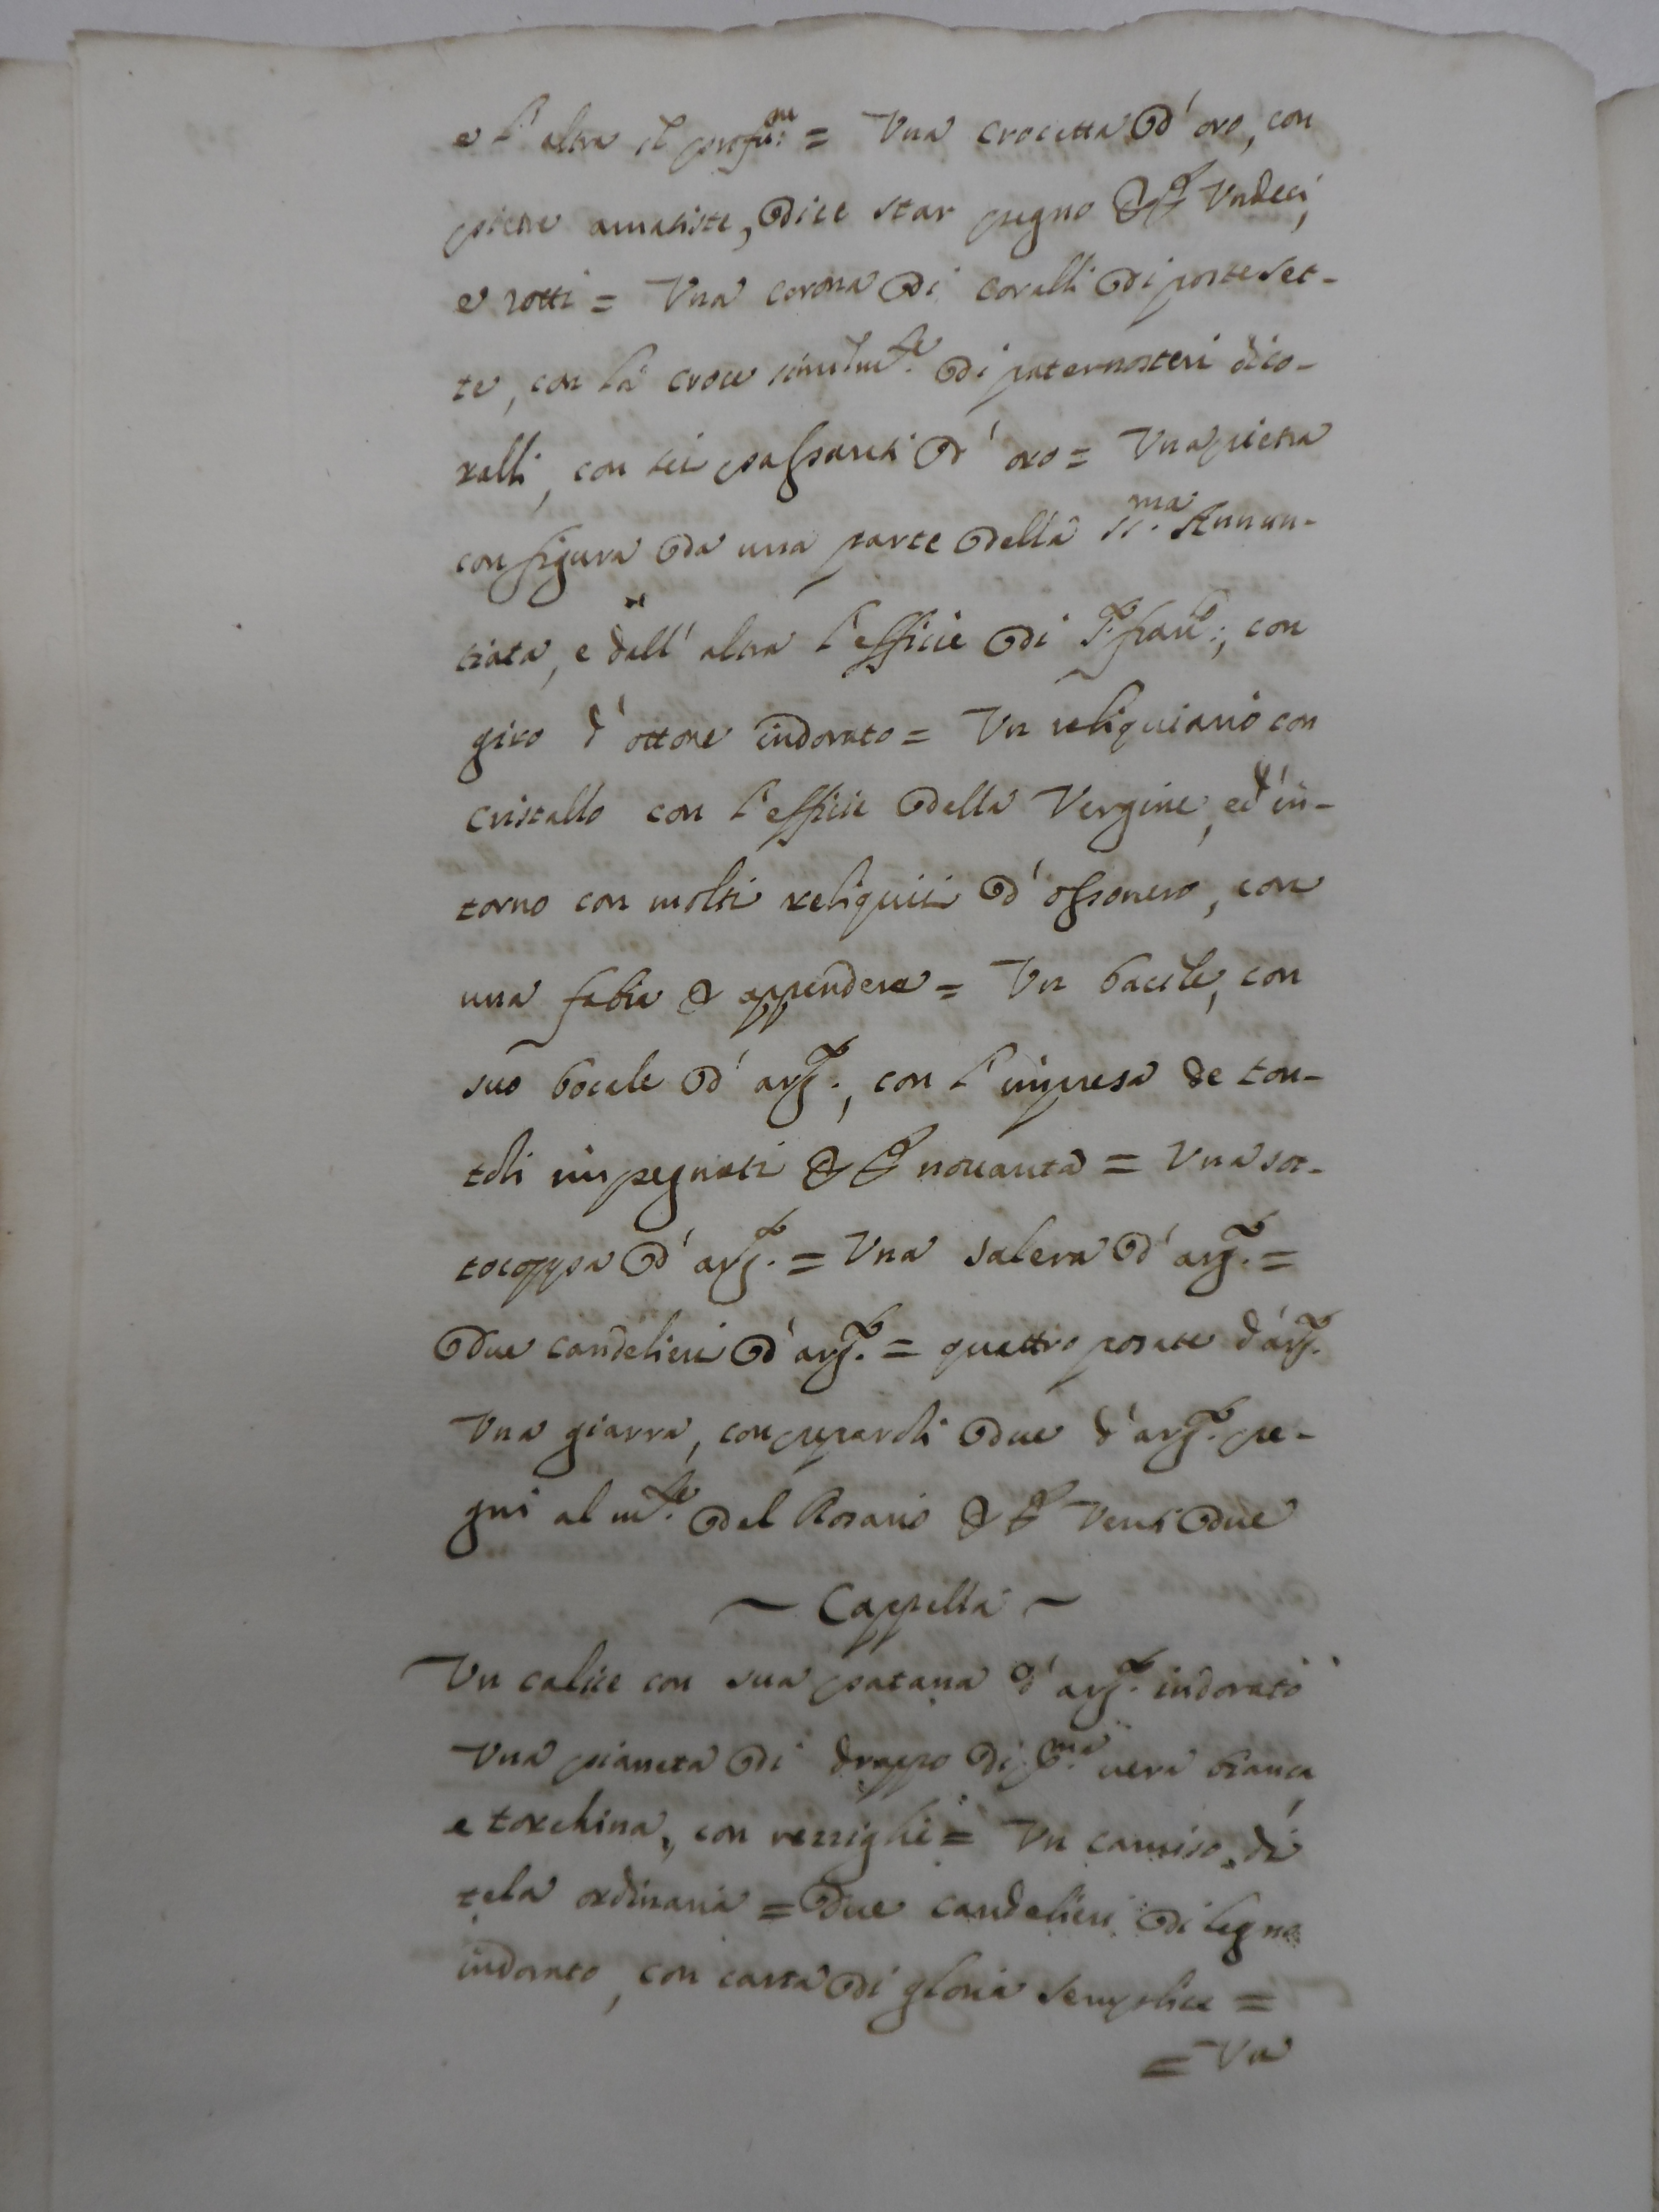 e l'altra il profu:m = Una crocetta d'oro, con
pietre amatiste, dice star pegno Undeci,
e rotti = Una corona di coralli di poste set-
te, con la croce similm.te di paternosteri di co-
ralli, con sei passanti d'oro = Una pietra
con figura da una parte della SS.ma Annun-
ciata, e dall'altra l'efficie di S. Fran.co, con
giro d'ottone indorato = Un reliquiario con
cristallo con l'efficie della Vergine, ed in-
torno con molti reliquii d'ossonero, con
una appendere = Un bacile, con
suo bocale d'arg.to, con l'impresa de ton-
toli impegnati novanta = Una sot-
tocoppa d'arg.to = Una salera d'arg.to =
Due candelieri d'arg.to = quattro posate d'arg.to
Una giarra, con due d'arg.to pe-
gni al m.te del Rosario Venti due
~ Cappella ~
Un calice con sua patana d'arg.to indorato
Una pianeta di drappo di p.ma vera bianca
e torchina, con = Un camiso di
tela ordinaria = Due candelieri di legno
indorato, con carta di gloria semplice =
= Un